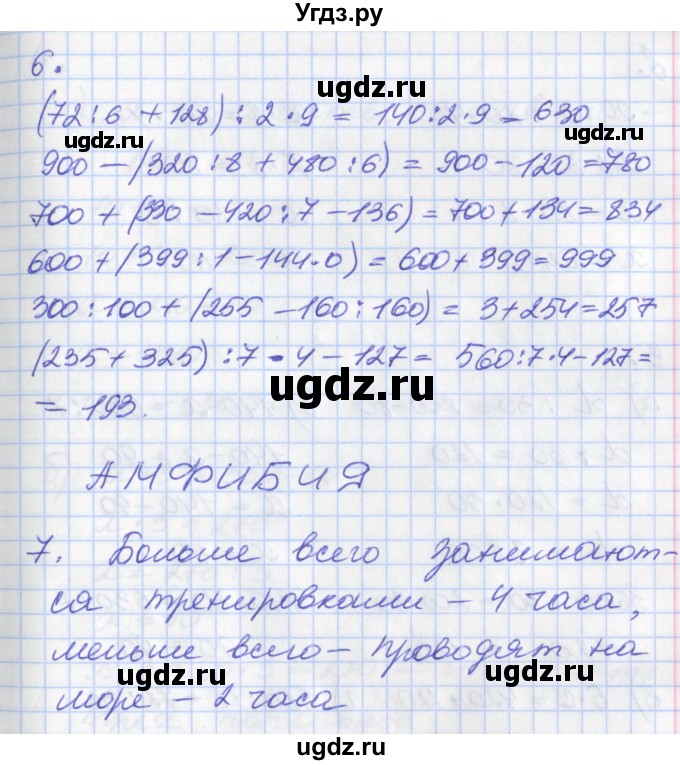 Угдз.ру
6.
(72:6+128):2·9 = 140:2·9 = 630
900-(320:8+480:6) = 900-120=780
700+(330-420:7-136)=700+134=834
600+(399:1-144·0) = 600+399=999
300:100+(255-160:160) = 3+254=257
(235+325):7·4-127= 560:7·4-127=
= 193.
АМФИБИЯ
7. Больше всего занимают-
ся тренировками - 4 часа,
меньше всего - проводят на
море - 2 часа
ugdz.ru
ugdz.ru
ugdz.ru
ugdz.ru
ugdz.ru
ugdz.ru
ugdz.ru
ugdz.ru
ugdz.ru
ugdz.ru
ugdz.ru